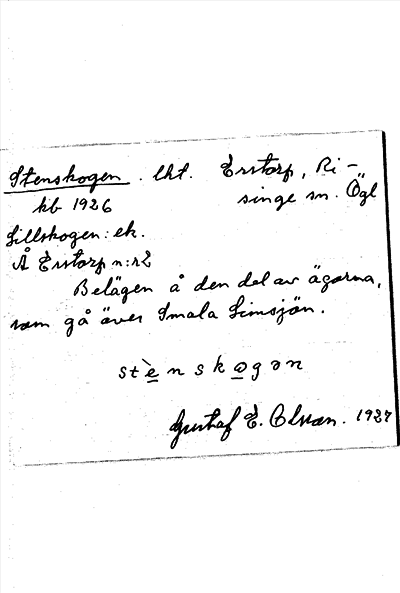 Stenskogen. lht. Erstorp, Ri-
kb 1926 singe sn. Ögl
Lillskogen: ek.
Å Erstorp n:r 2
Belägen å den del av ägorna,
som gå över Smala Limsjön.
stè̱nsko̱gən
Gustaf E. Olsson. 1927